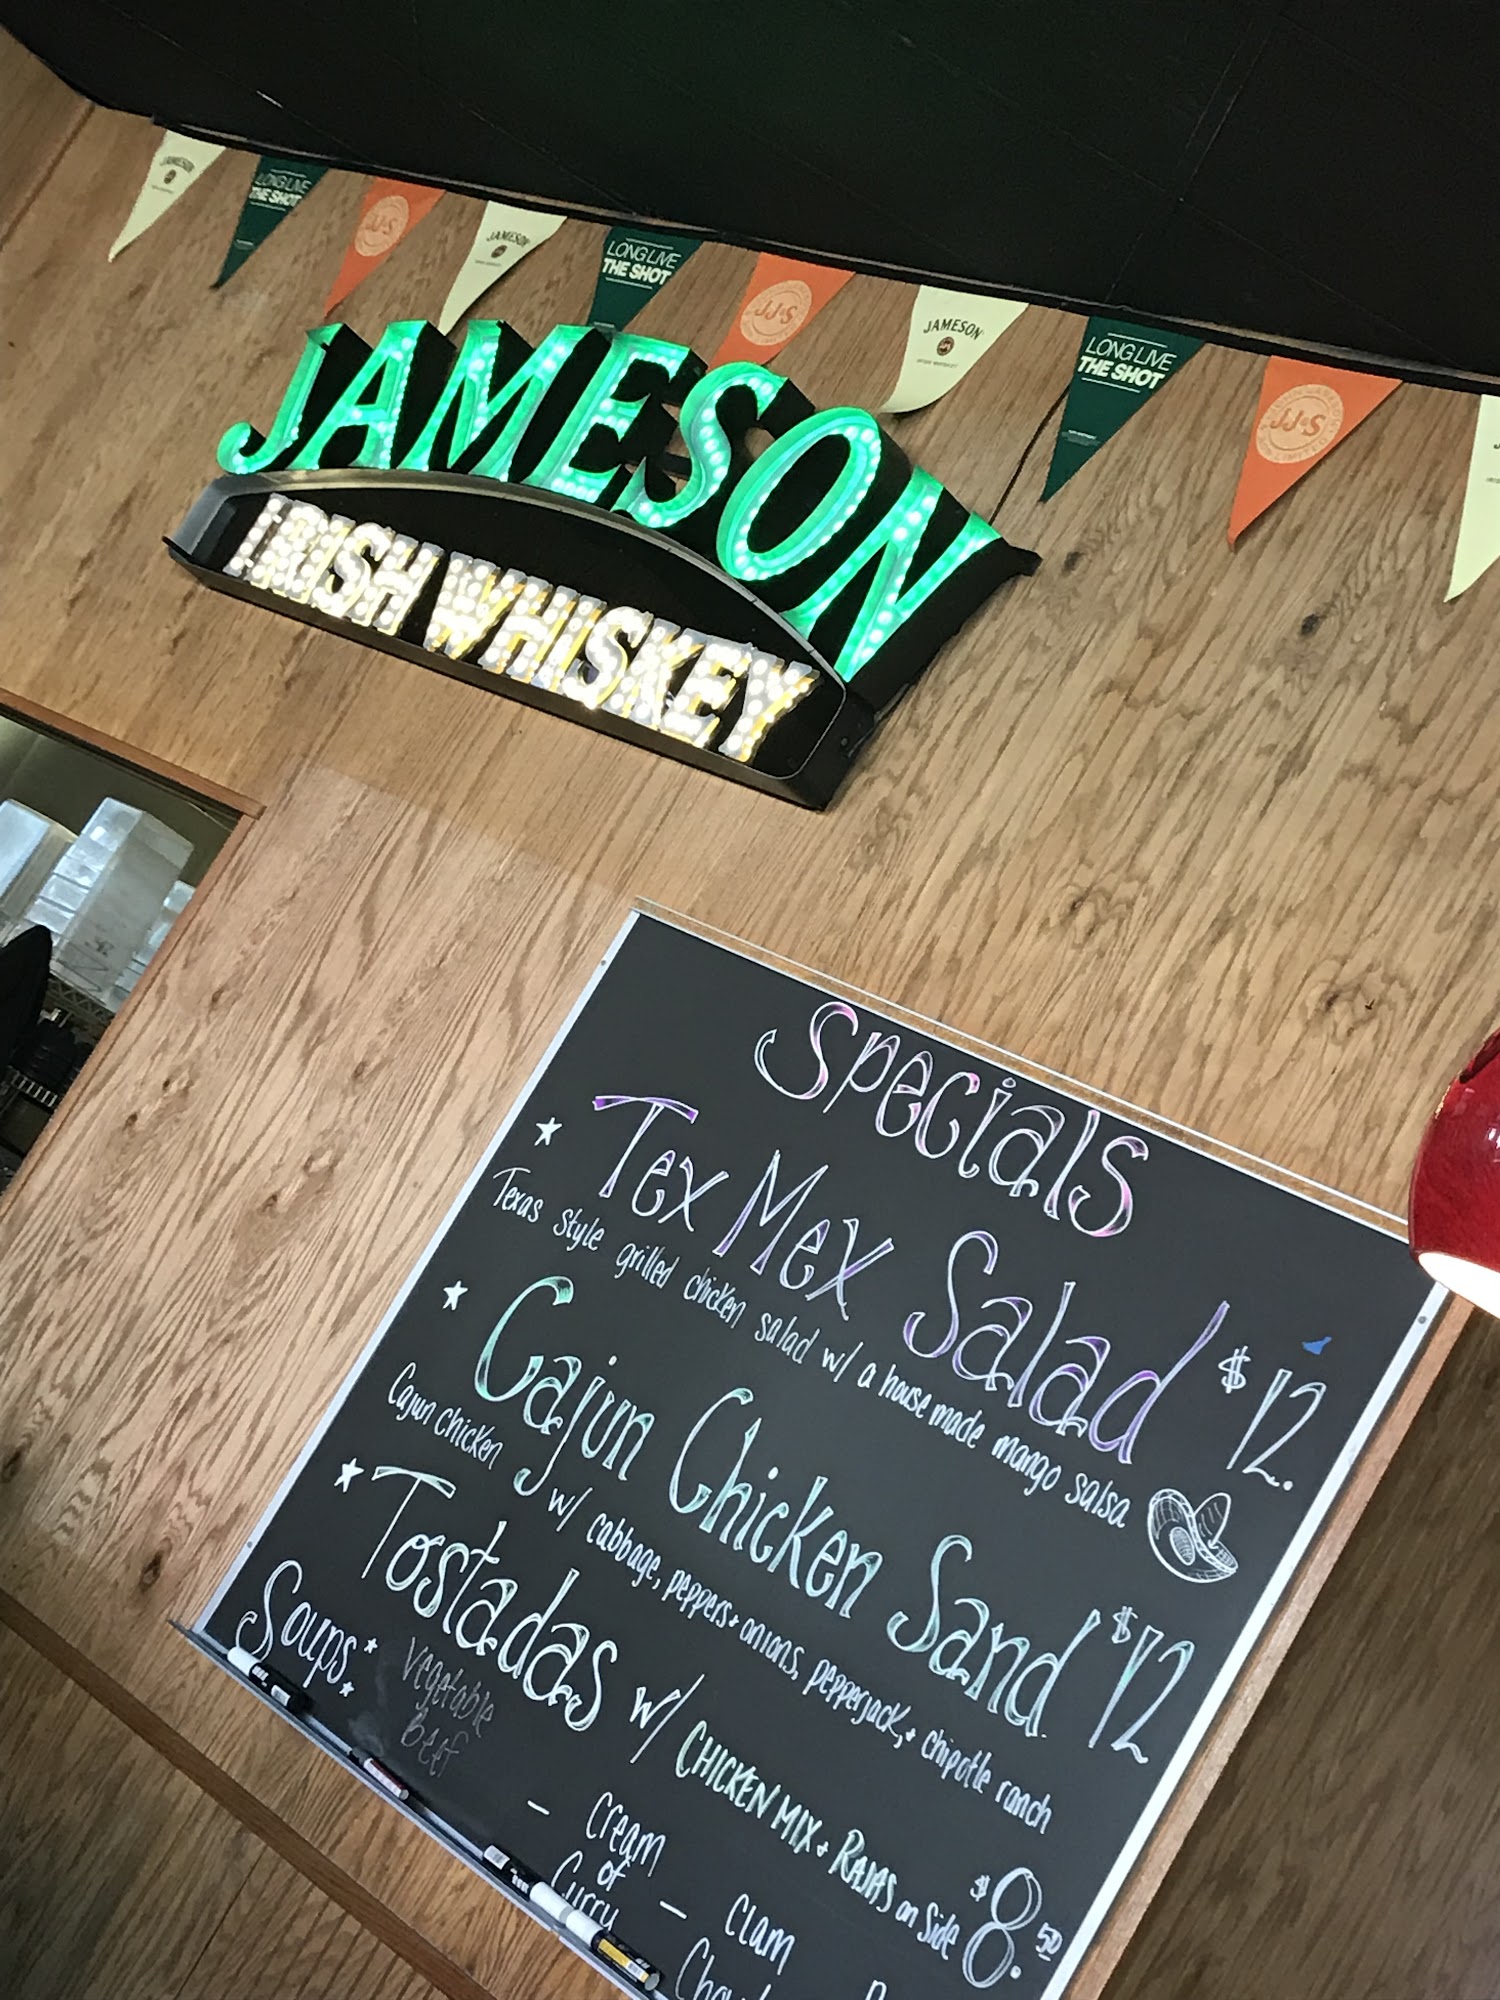 JAMESON
LONG LIVE
THE SHOT
JJ&S
JAMESON
LONG LIVE
THE SHOT
JJ&S
JAMESON
LONG LIVE
THE SHOT
JJ&S
JAMESON
IRISH WHISKEY
Specials
Tex Mex Salad $12.
Texas style grilled chicken salad w/ a house made mango salsa
Cajun Chicken Sand $12
Cajun chicken w/ cabbage, peppers + onions, pepperjack, + chipotle ranch
Tostadas w/ CHICKEN MIX + RAJAS on side $8.50
Soups:
Vegetable
Beef
- Cream
of
Curry
- Clam